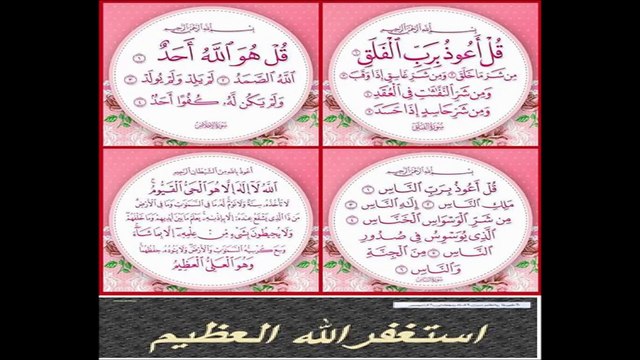 بِسْمِ اللَّهِ الرَّحْمَٰنِ الرَّحِيمِ
قُلْ أَعُوذُ بِرَبِّ الْفَلَقِ ١
مِن شَرِّ مَا خَلَقَ ٢ وَمِن شَرِّ غَاسِقٍ إِذَا وَقَبَ ٣
وَمِن شَرِّ النَّفَّاثَاتِ فِي الْعُقَدِ ٤
وَمِن شَرِّ حَاسِدٍ إِذَا حَسَدَ ٥
سورة الفلق
بِسْمِ اللَّهِ الرَّحْمَٰنِ الرَّحِيمِ
قُلْ هُوَ اللَّهُ أَحَدٌ ١
اللَّهُ الصَّمَدُ ٢ لَمْ يَلِدْ وَلَمْ يُولَدْ ٣
وَلَمْ يَكُن لَّهُ كُفُوًا أَحَدٌ ٤
سورة الإخلاص
بِسْمِ اللَّهِ الرَّحْمَٰنِ الرَّحِيمِ
قُلْ أَعُوذُ بِرَبِّ النَّاسِ ١
مَلِكِ النَّاسِ ٢ إِلَٰهِ النَّاسِ ٣
مِن شَرِّ الْوَسْوَاسِ الْخَنَّاسِ ٤
الَّذِي يُوَسْوِسُ فِي صُدُورِ
النَّاسِ ٥ مِنَ الْجِنَّةِ
وَالنَّاسِ ٦
أعوذ بالله من الشيطان الرجيم
اللَّهُ لَا إِلَٰهَ إِلَّا هُوَ الْحَيُّ الْقَيُّومُ
لَا تَأْخُذُهُ سِنَةٌ وَلَا نَوْمٌ لَّهُ مَا فِي السَّمَاوَاتِ وَمَا فِي الْأَرْضِ
مَن ذَا الَّذِي يَشْفَعُ عِندَهُ إِلَّا بِإِذْنِهِ يَعْلَمُ مَا بَيْنَ أَيْدِيهِمْ وَمَا خَلْفَهُمْ
وَلَا يُحِيطُونَ بِشَيْءٍ مِّنْ عِلْمِهِ إِلَّا بِمَا شَاءَ
وَسِعَ كُرْسِيُّهُ السَّمَاوَاتِ وَالْأَرْضَ وَلَا يَئُودُهُ حِفْظُهُمَا
وَهُوَ الْعَلِيُّ الْعَظِيمُ
استغفر الله العظيم